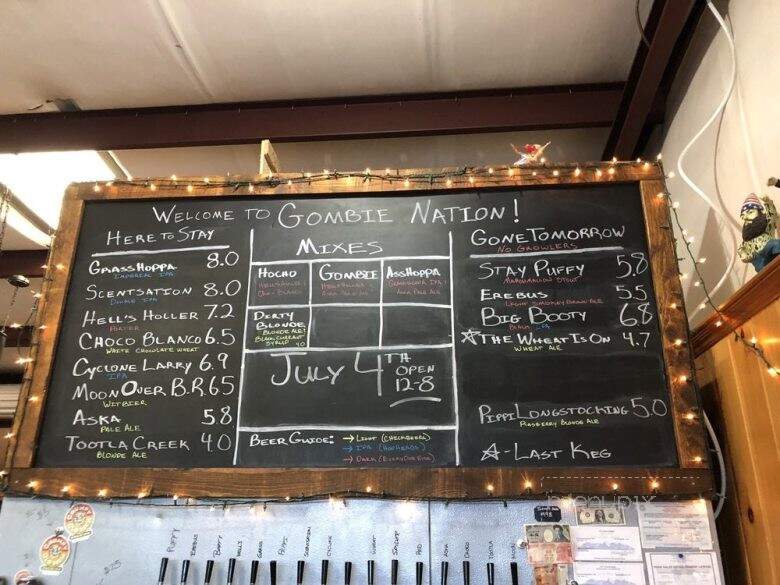 WELCOME TO GOMBIE NATION!
HERE TO STAY
GRASSHOPPA 8.0
IMPERIAL IPA
SCENTSATION 8.0
DOUBLE IPA
HELL'S HOLLER 7.2
PORTER
CHOCO BLANCO 6.5
WHITE CHOCOLATE WHEAT
CYCLONE LARRY 6.9
IPA
MOON OVER B.R. 6.5
WITBIER
ASKA 5.8
PALE ALE
TOOTLA CREEK 4.0
BLONDE ALE
MIXES
HOCHO
GOMBIE
ASSHOPPA
DIRTY
BLONDE
BLONDE ALE!
BLACK CURRANT
SYRUP 4.0
JULY 4TH
OPEN
12-8
BEER GUIDE: → LIGHT (CHECKBEERS)
→ IPA (HOPHEADS)
→ DARK (EVERYONE ELSE)
GONE TOMORROW
NO GROWLERS
STAY PUFFY 5.8
MARSHMALLOW STOUT
EREBUS 5.5
LIGHT SMOKEY BROWN ALE
BIG BOOTY 6.8
BLACK IPA
☆THE WHEAT IS ON 4.7
WHEAT ALE
PIPPI LONGSTOCKING 5.0
RASPBERRY BLONDE ALE
☆-LAST KEG
menupix
PUFFY
EREBUS
BOOTY
HELL'S